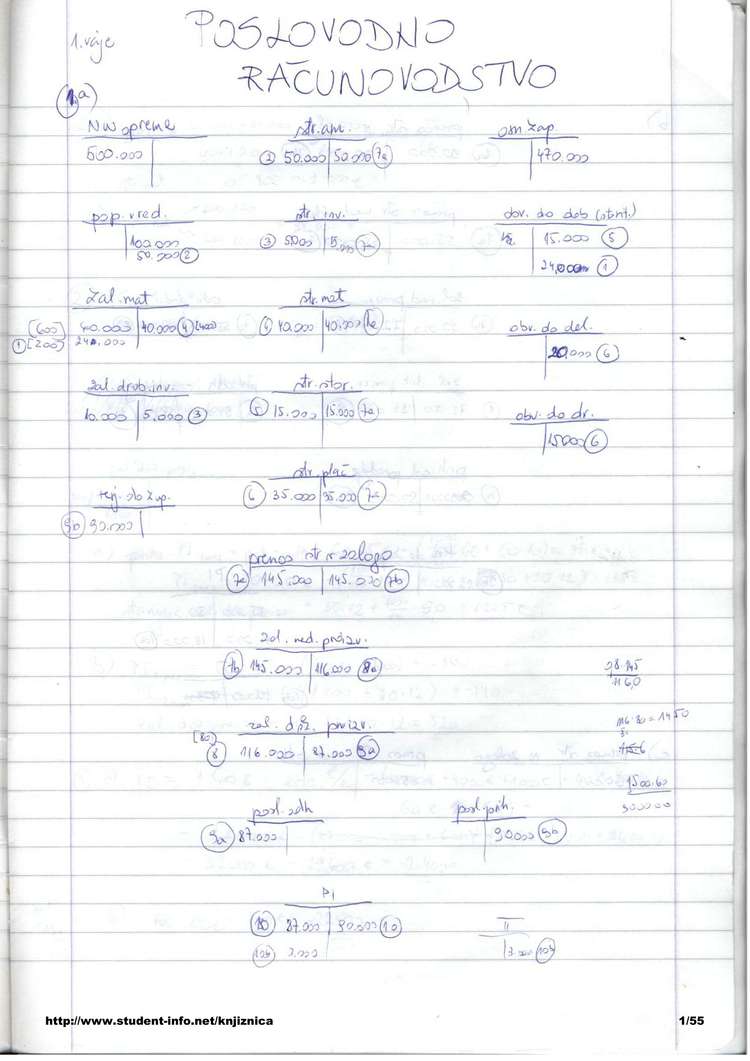 1. vaje
POSLOVODNO
RAČUNOVODSTVO
1.a
NV opreme
500.000
str. am.
2 50.000 50.000 7a
osn. kap.
470.000
pop. vred.
100.000
50.000 2
str. inv.
3 5000 5.000 7a
obv. do dob (stor.)
15.000 5
24.000 1
zal. mat
[600] 40.000 40.000 4 [400]
1 [200]
str. mat
4 40.000 40.000 7a
obv. do del.
20.000 6
zal. drob. inv.
10.000 5.000 3
str. stor.
5 15.000 15.000 7a
obv. do dr.
15000 6
str. plač
6 35.000 35.000 7a
9b 90.000
prenos str. v zalogo
7a 145.000 145.000 7b
zal. ned. proizv.
7b 145.000 116.000 8a
116,0
zal. dok. proizv.
[80]
8 116.000 87.000 9a
116:80=1450
1500.60
posl. odh
9a 87.000
posl. prih.
90000 9b
PI
10 87.000 90.000 10
10b 3.000
3.000 10b
http://www.student-info.net/knjiznica
1/55